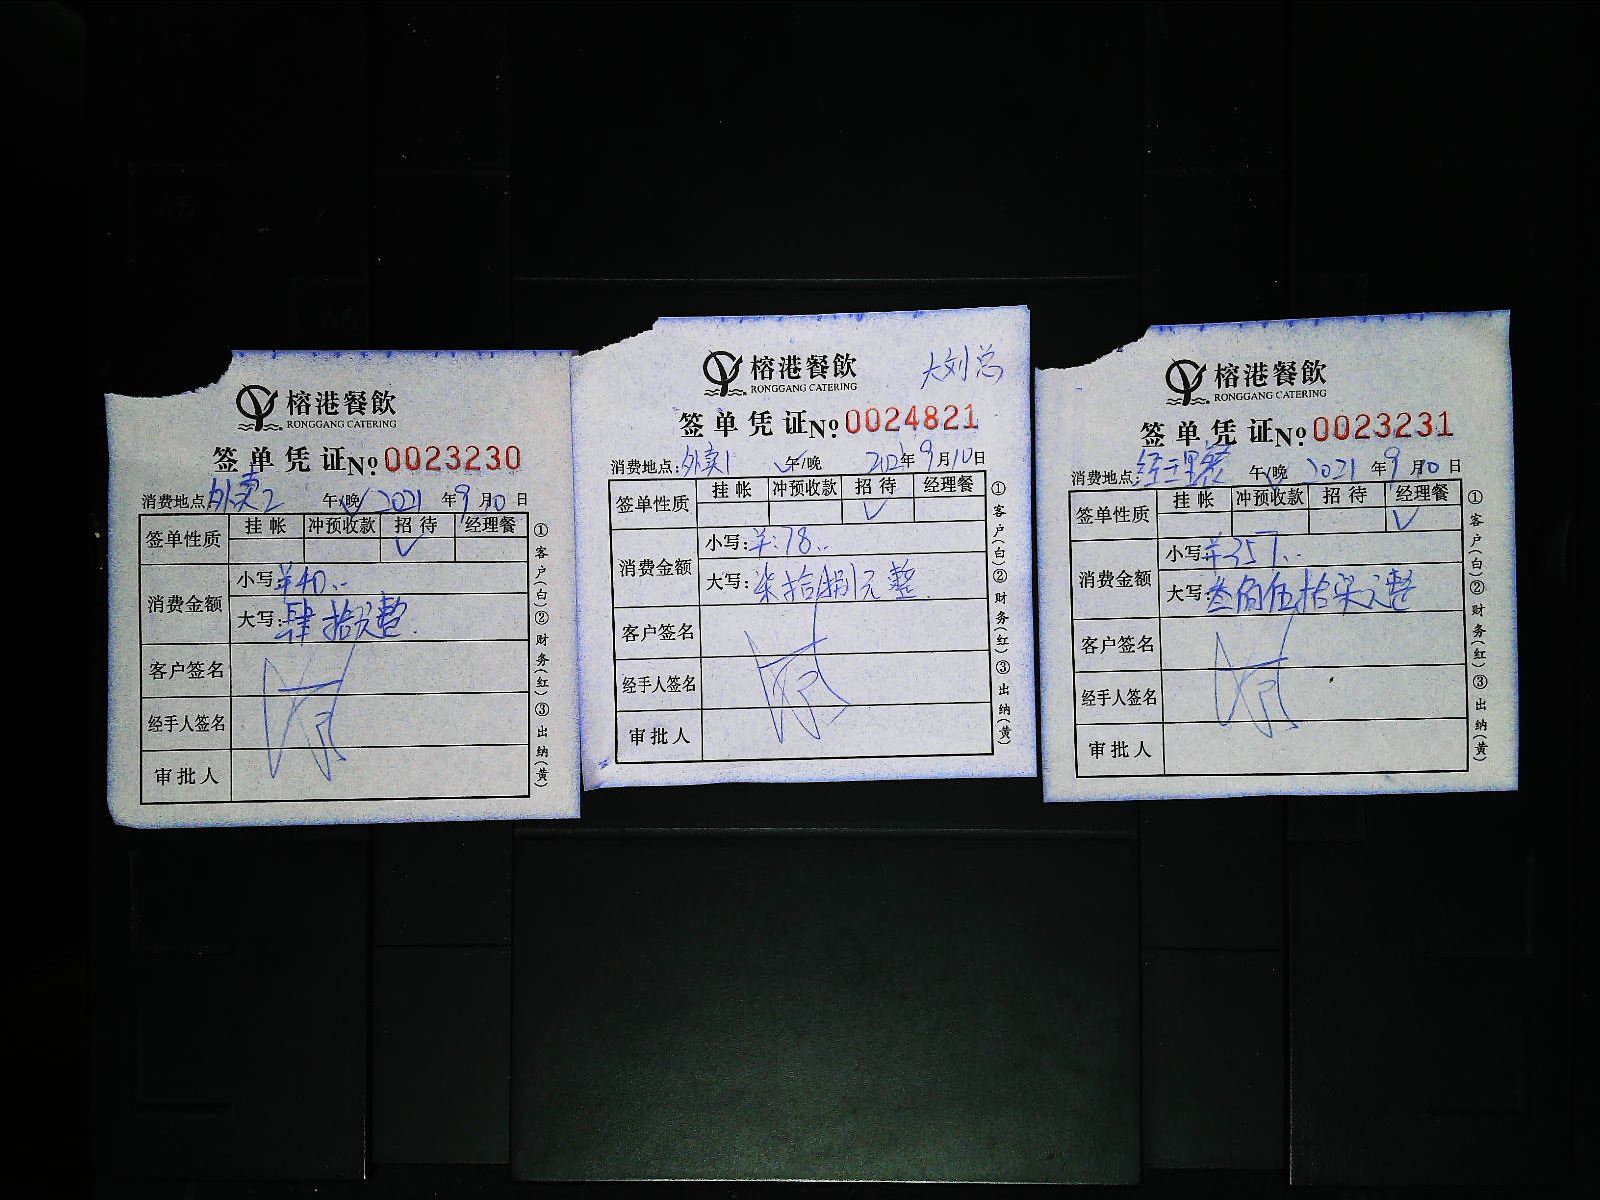 榕港餐飲
RONGGANG CATERING
签单凭证 No 0023230
消费地点:外卖2 午/晚 ✓ 2021年9月10日
签单性质 挂帐 冲预收款 招待 经理餐
✓
消费金额 小写:¥40..
大写:肆拾元整.
客户签名
经手人签名
审批人
①客户(白)②财务(红)③出纳(黄)
榕港餐飲
RONGGANG CATERING
大刘总
签单凭证 No 0024821
消费地点:外卖1 ✓午/晚 年9月10日
签单性质 挂帐 冲预收款 招待 经理餐
✓
消费金额 小写:¥:78..
大写:柒拾捌元整.
客户签名
经手人签名
审批人
①客户(白)②财务(红)③出纳(黄)
榕港餐飲
RONGGANG CATERING
签单凭证 No 0023231
消费地点:经理餐 午/晚 ✓ 2021年9月10日
签单性质 挂帐 冲预收款 招待 经理餐
✓
消费金额 小写:¥357..
大写:叁佰伍拾柒元整
客户签名
经手人签名
审批人
①客户(白)②财务(红)③出纳(黄)